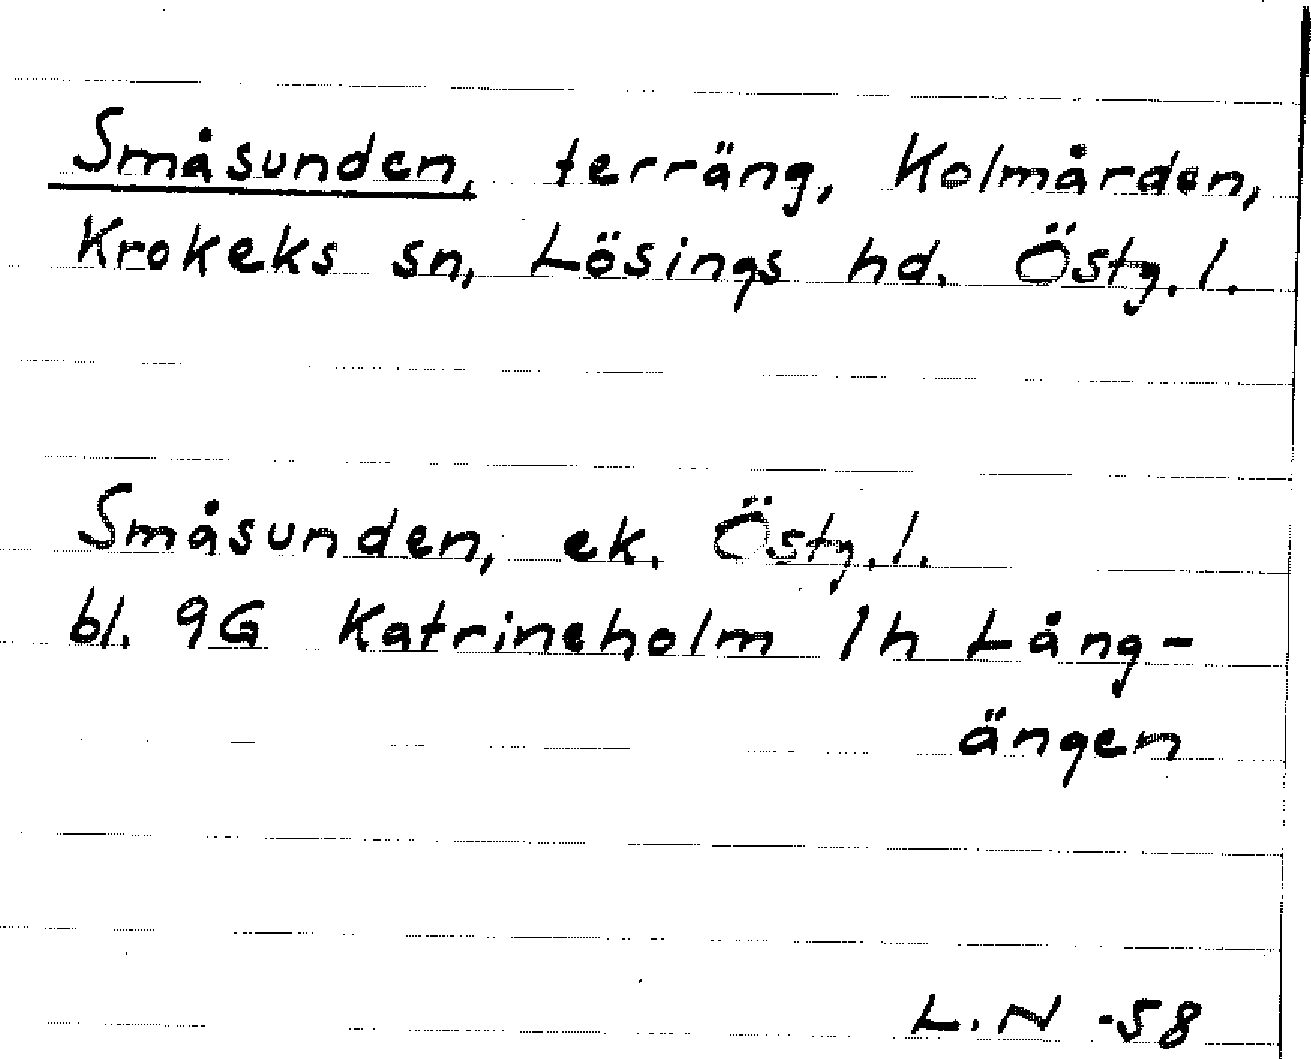 Småsunden, terräng, Kolmården,
Krokeks sn, Lösings hd. Östg. l.
Småsunden, ek. Östg. l.
bl. 9G Katrineholm 1h Lång-
ängen
L.N -58